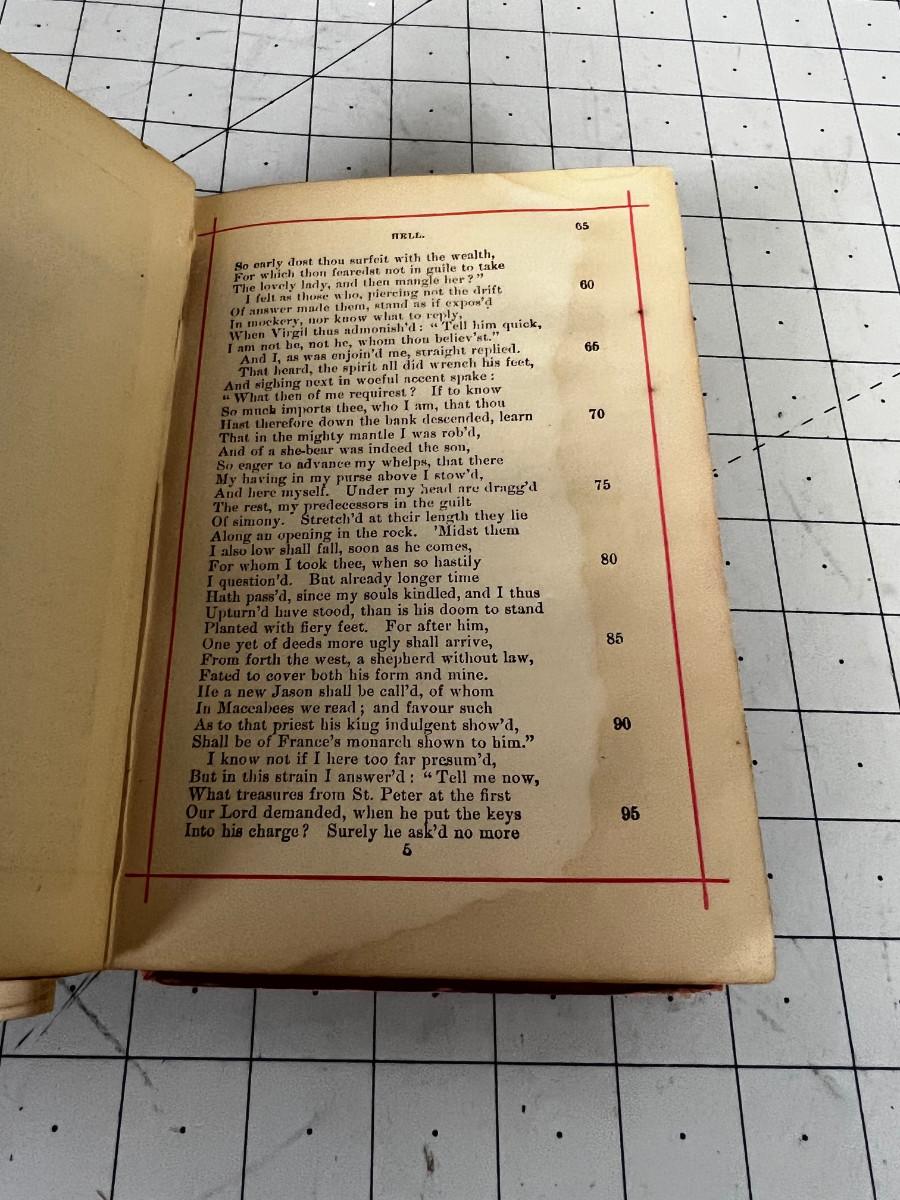 HELL. 65
So early dost thou surfeit with the wealth,
For which thou fearedst not in guile to take
The lovely lady, and then mangle her?"
I felt as those who, piercing not the drift 60
Of answer made them, stand as if expos'd
In mockery, nor know what to reply,
When Virgil thus admonish'd: "Tell him quick,
I am not he, not he, whom thou believ'st."
And I, as was enjoin'd me, straight replied. 66
That heard, the spirit all did wrench his feet,
And sighing next in woeful accent spake:
"What then of me requirest? If to know
So much imports thee, who I am, that thou
Hast therefore down the bank descended, learn 70
That in the mighty mantle I was rob'd,
And of a she-bear was indeed the son,
So eager to advance my whelps, that there
My having in my purse above I stow'd,
And here myself. Under my head are dragg'd 75
The rest, my predecessors in the guilt
Of simony. Stretch'd at their length they lie
Along an opening in the rock. 'Midst them
I also low shall fall, soon as he comes,
For whom I took thee, when so hastily 80
I question'd. But already longer time
Hath pass'd, since my souls kindled, and I thus
Upturn'd have stood, than is his doom to stand
Planted with fiery feet. For after him,
One yet of deeds more ugly shall arrive, 85
From forth the west, a shepherd without law,
Fated to cover both his form and mine.
He a new Jason shall be call'd, of whom
In Maccabees we read; and favour such
As to that priest his king indulgent show'd, 90
Shall be of France's monarch shown to him."
I know not if I here too far presum'd,
But in this strain I answer'd: "Tell me now,
What treasures from St. Peter at the first
Our Lord demanded, when he put the keys 95
Into his charge? Surely he ask'd no more
5